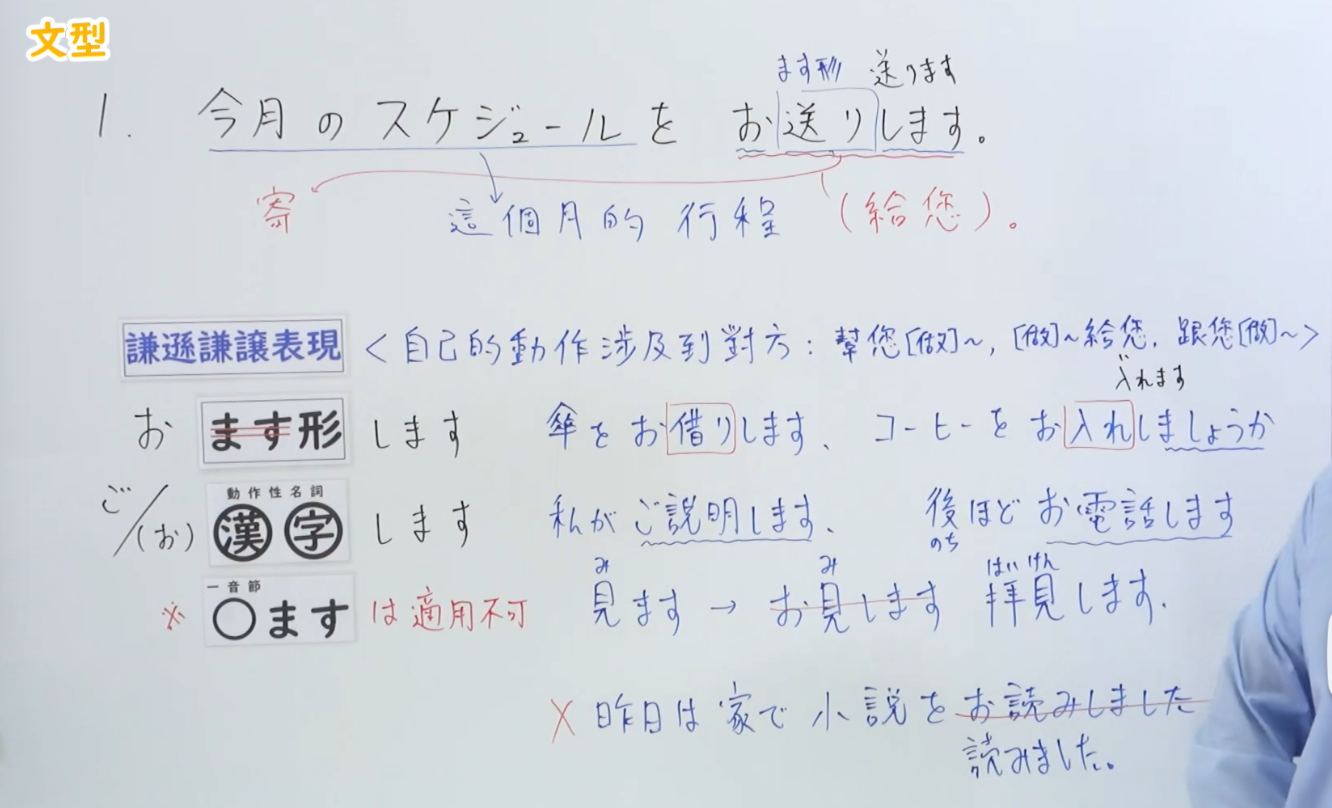 文型
ます形 送ります
1. 今月のスケジュールを お送りします。
寄 這個月的 行程 (給您)。
謙遜謙讓表現 <自己的動作涉及到對方:幫您[做]~,[做]~給您,跟您[做]~>
入れます
お ます形 します 傘をお借りします、 コーヒーをお入れしましょうか
動作性名詞
ご/(お) 漢字 します 私がご説明します、 後ほどお電話します
のち
一音節 み み はいけん
※ ○ます は適用不可 見ます → お見します 拝見します.
X 昨日は家で小説をお読みしました
読みました。